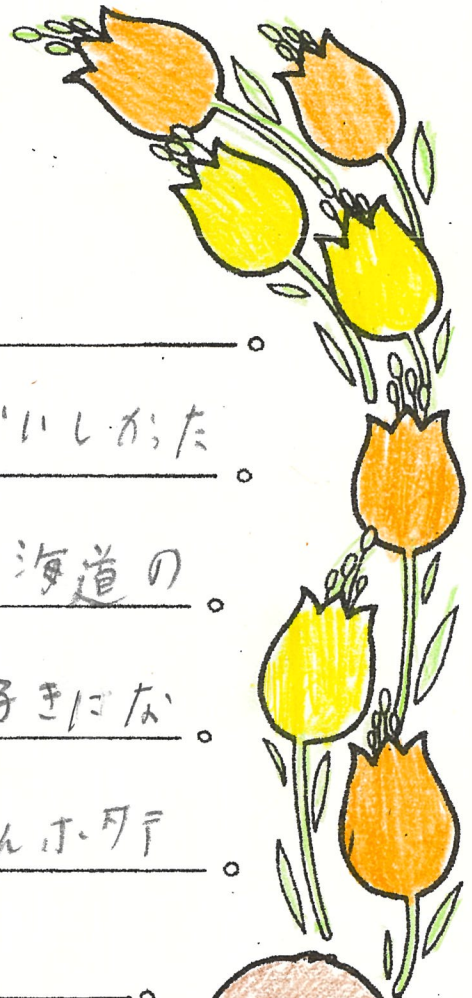 いしかった
海道の
好きにな
んホタテ